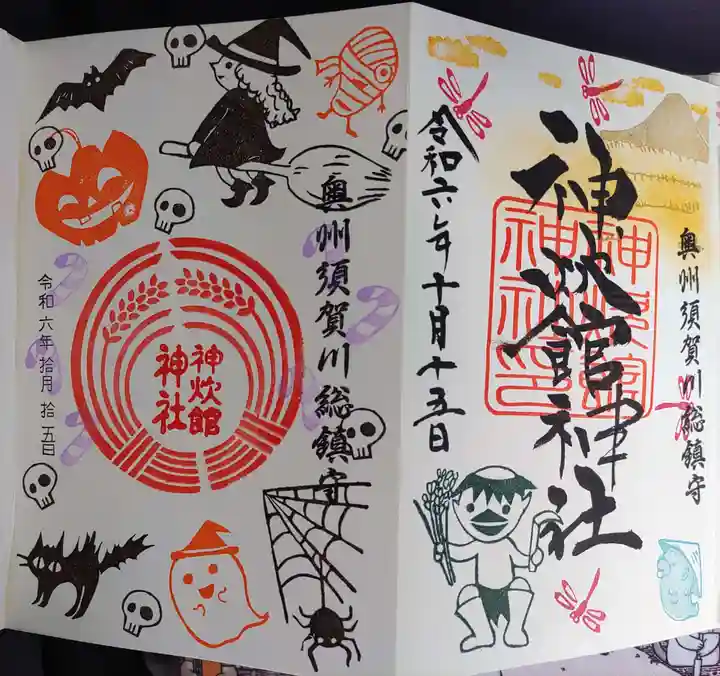 奥州須賀川総鎮守
神炊館神社
神炊館
神社印
令和六年十月十五日
奥州須賀川総鎮守
神炊館
神社
令和六年拾月拾五日